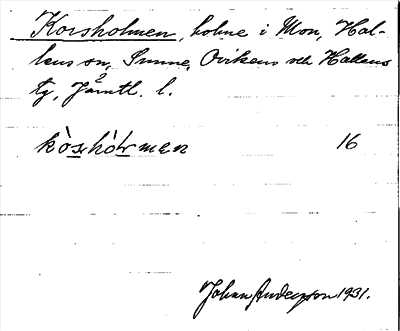 Korsholmen, holme i Mon, Hal-
lens sn, Sunne, Ovikens och Hallens
tg, Jämtl. l.
kòsrhòlrmen 16
Johan Anderson 1931.